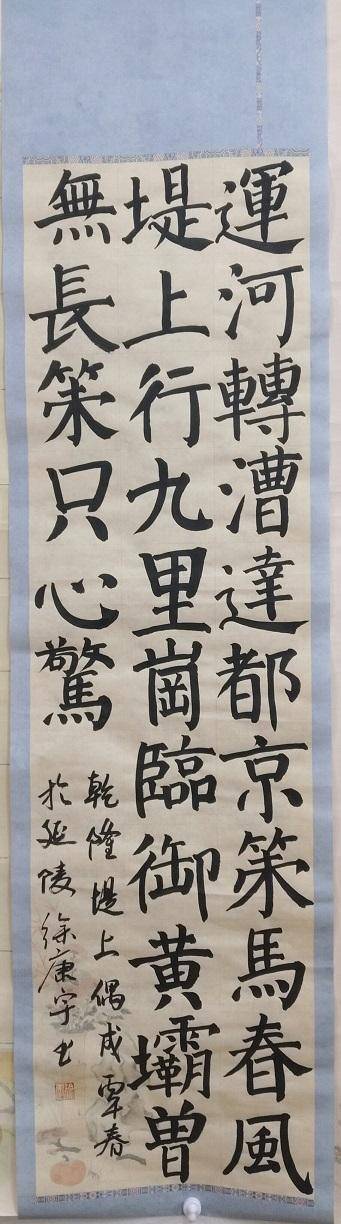 運河轉漕達都京策馬春風
堤上行九里崗臨御黄壩曾
無長策只心驚
乾隆堤上偶成 覃春
於延陵 徐康宇书